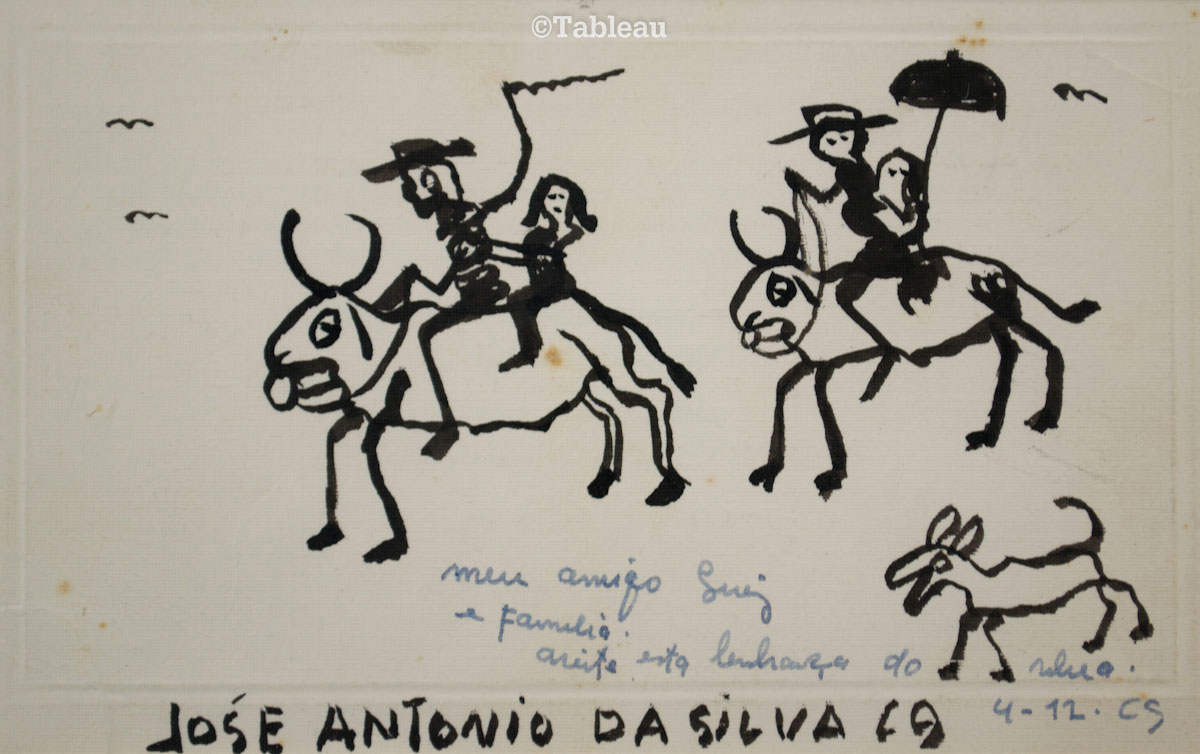 ©Tableau
meu amigo
e familia.
aceite esta lembrança do silva.
4-12.69
JOSÉ ANTONIO DA SILVA 69